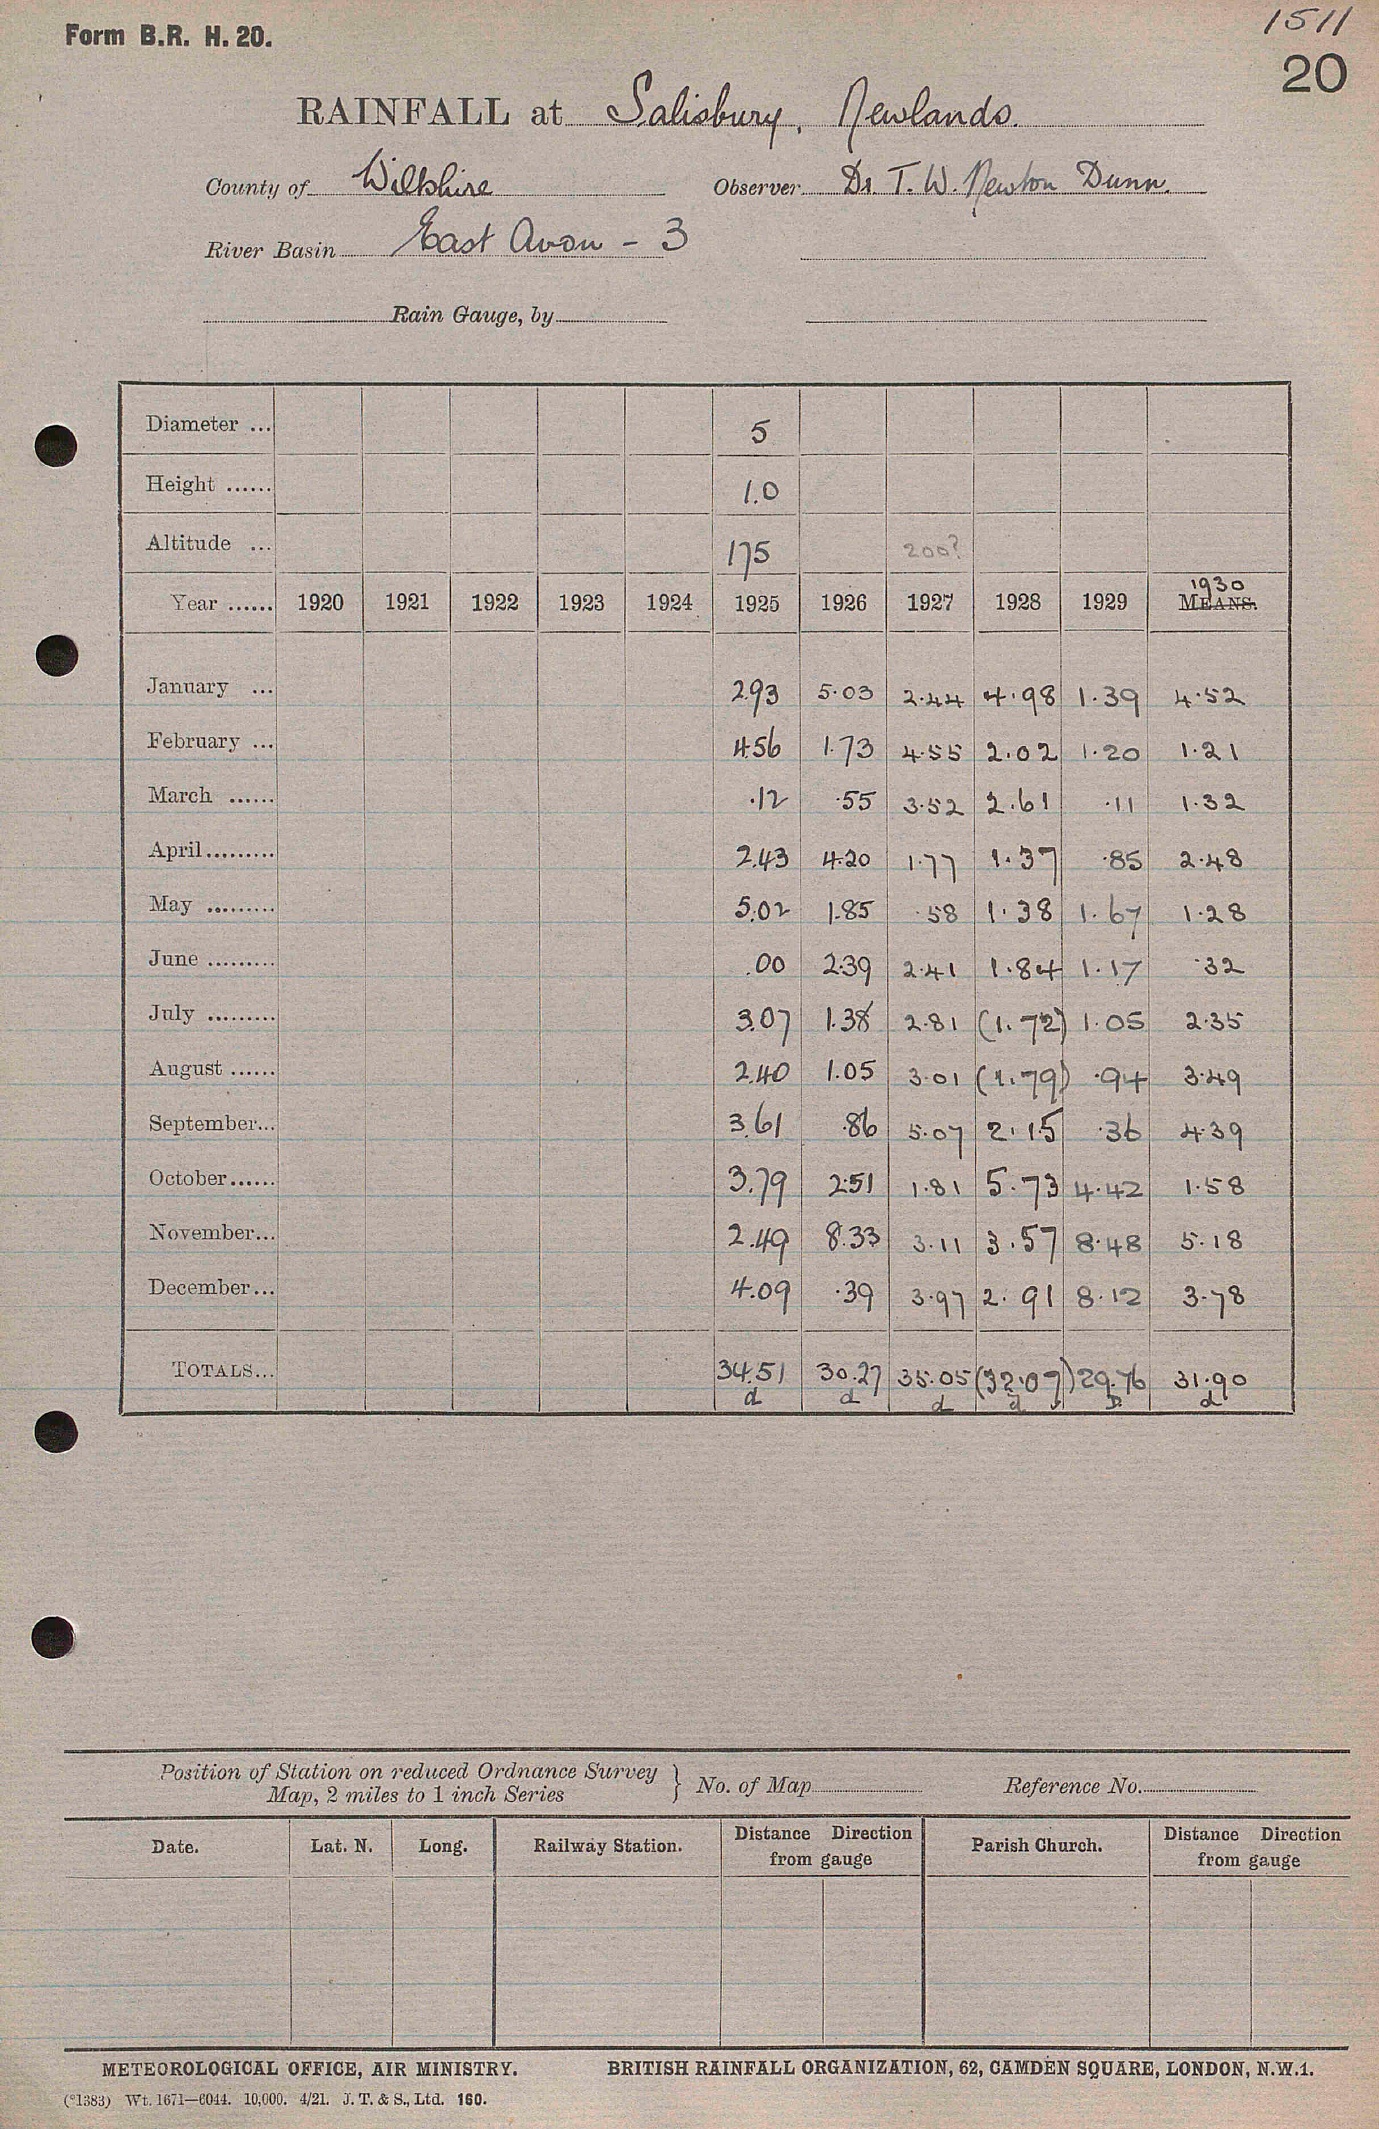 Form B.R. H. 20.
1511
20
RAINFALL at Salisbury, Newlands.
County of Wiltshire Observer Dr. T. W. Newton Dunn.
River Basin East Avon - 3
Rain Gauge, by
Diameter ... 5
Height ...... 1.0
Altitude ... 175 200?
1930
Year ...... 1920 1921 1922 1923 1924 1925 1926 1927 1928 1929 MEANS.
January ... 2.93 5.03 2.44 4.98 1.39 4.52
February ... 4.56 1.73 4.55 2.02 1.20 1.21
March ...... .12 .55 3.52 2.61 .11 1.32
April......... 2.43 4.20 1.77 1.37 .85 2.48
May ......... 5.02 1.85 .58 1.38 1.67 1.28
June ......... .00 2.39 2.41 1.84 1.17 .32
July ......... 3.07 1.38 2.81 (1.72) 1.05 2.35
August ...... 2.40 1.05 3.01 (1.79) .94 3.49
September... 3.61 .86 5.07 2.15 .36 4.39
October...... 3.79 2.51 1.81 5.73 4.42 1.58
November... 2.49 8.33 3.11 3.57 8.48 5.18
December... 4.09 .39 3.97 2.91 8.12 3.78
TOTALS... 34.51 30.27 35.05 (32.07) 29.76 31.90
d d d d D d
Position of Station on reduced Ordnance Survey
Map, 2 miles to 1 inch Series } No. of Map Reference No.
Date. Lat. N. Long. Railway Station. Distance Direction from gauge Parish Church. Distance Direction from gauge
METEOROLOGICAL OFFICE, AIR MINISTRY. BRITISH RAINFALL ORGANIZATION, 62, CAMDEN SQUARE, LONDON, N.W.1.
(*1383) Wt. 1671—6044. 10,000. 4/21. J. T. & S., Ltd. 160.